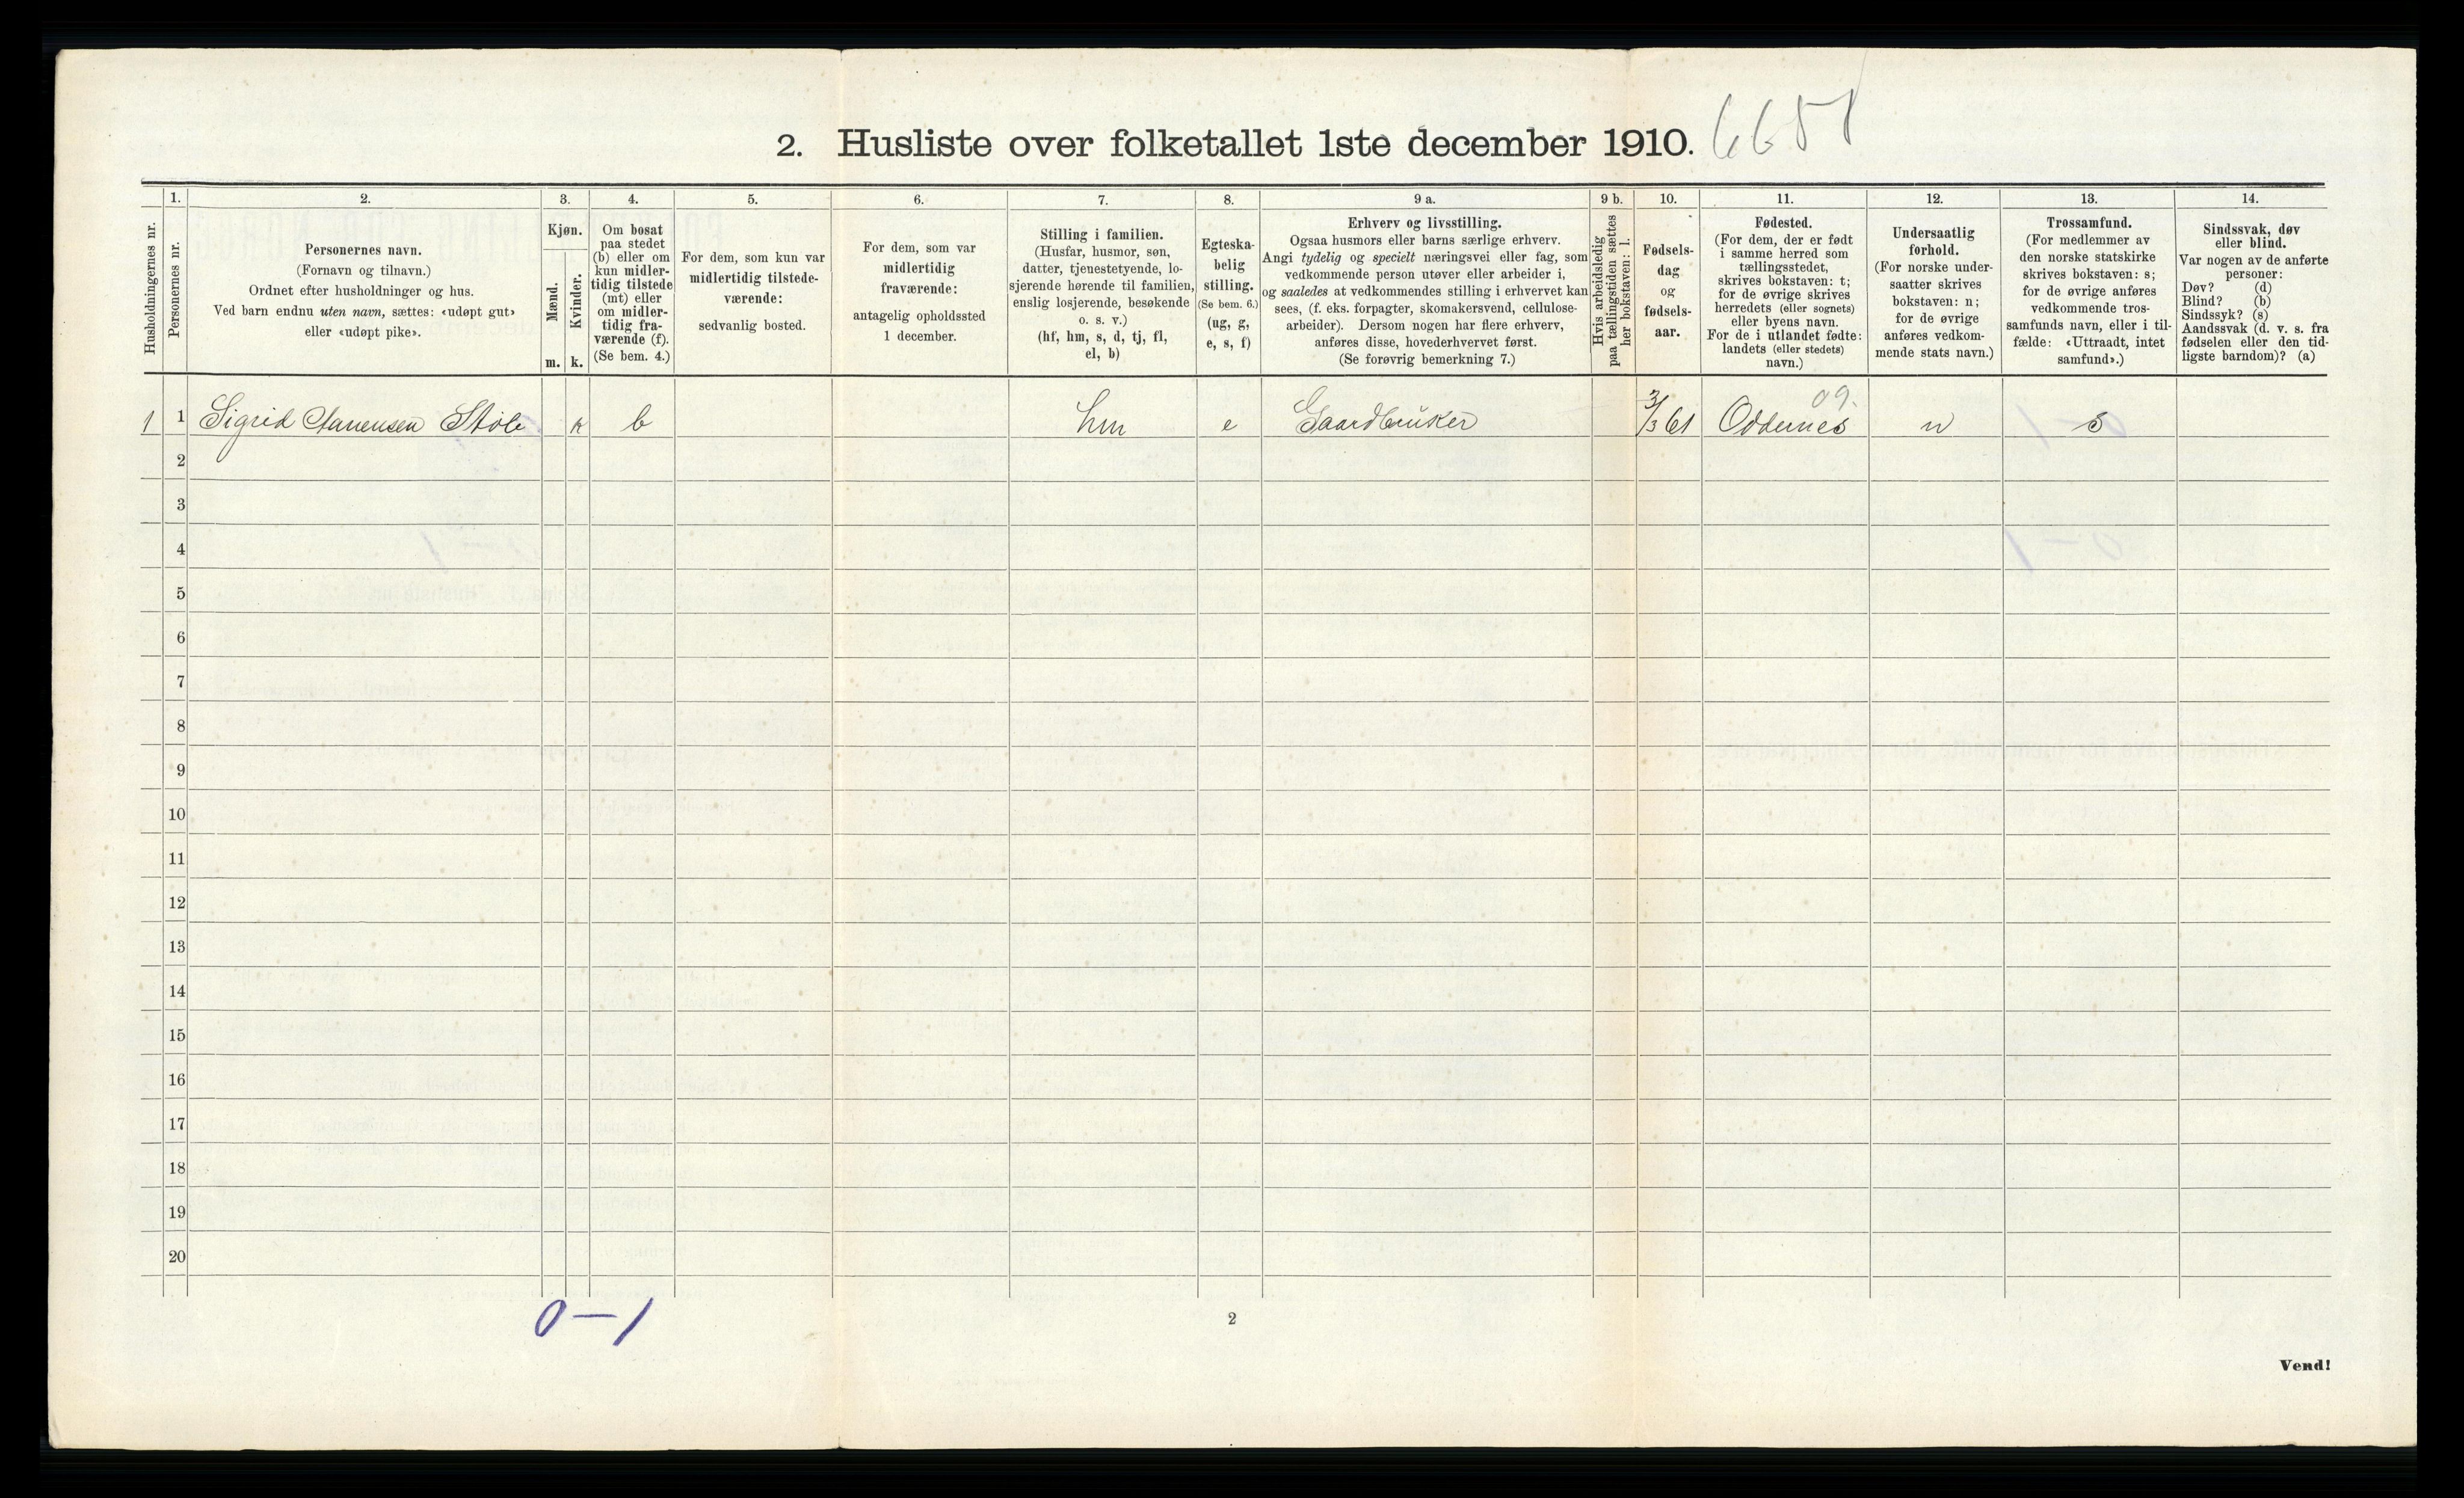 2. Husliste over folketallet 1ste december 1910. 6651
Husholdningernes nr.
1. Personernes nr.
2. Personernes navn.
(Fornavn og tilnavn.)
Ordnet efter husholdninger og hus.
Ved barn endnu uten navn, sættes: «udøpt gut»
eller «udøpt pike».
3. Kjøn.
Mænd. m.
Kvinder. k.
4. Om bosat
paa stedet
(b) eller om
kun midler-
tidig tilstede
(mt) eller
om midler-
tidig fra-
værende (f).
(Se bem. 4.)
5. For dem, som kun var
midlertidig tilstede-
værende:
sedvanlig bosted.
6. For dem, som var
midlertidig
fraværende:
antagelig opholdssted
1 december.
7. Stilling i familien.
(Husfar, husmor, søn,
datter, tjenestetyende, lo-
sjerende hørende til familien,
enslig losjerende, besøkende
o. s. v.)
(hf, hm, s, d, tj, fl,
el, b)
8. Egteska-
belig
stilling.
(Se bem. 6.)
(ug, g,
e, s, f)
9 a. Erhverv og livsstilling.
Ogsaa husmors eller barns særlige erhverv.
Angi tydelig og specielt næringsvei eller fag, som
vedkommende person utøver eller arbeider i,
og saaledes at vedkommendes stilling i erhvervet kan
sees, (f. eks. forpagter, skomakersvend, cellulose-
arbeider). Dersom nogen har flere erhverv,
anføres disse, hovederhvervet først.
(Se forøvrig bemerkning 7.)
9 b. Hvis arbeidsledig
paa tællingstiden sættes
her bokstaven: l.
10. Fødsels-
dag
og
fødsels-
aar.
11. Fødested.
(For dem, der er født
i samme herred som
tællingsstedet,
skrives bokstaven: t;
for de øvrige skrives
herredets (eller sognets)
eller byens navn.
For de i utlandet fødte:
landets (eller stedets)
navn.)
12. Undersaatlig
forhold.
(For norske under-
saatter skrives
bokstaven: n;
for de øvrige
anføres vedkom-
mende stats navn.)
13. Trossamfund.
(For medlemmer av
den norske statskirke
skrives bokstaven: s;
for de øvrige anføres
vedkommende tros-
samfunds navn, eller i til-
fælde: «Uttraadt, intet
samfund».)
14. Sindssvak, døv
eller blind.
Var nogen av de anførte
personer:
Døv? (d)
Blind? (b)
Sindssyk? (s)
Aandssvak (d. v. s. fra
fødselen eller den tid-
ligste barndom)? (a)
09.
1 1 Sigrid Støle k b hm e Gaardbruker 3/3 61 Oddernes n s
2
3
4
5
6
7
8
9
10
11
12
13
14
15
16
17
18
19
20
0—1
2
Vend!